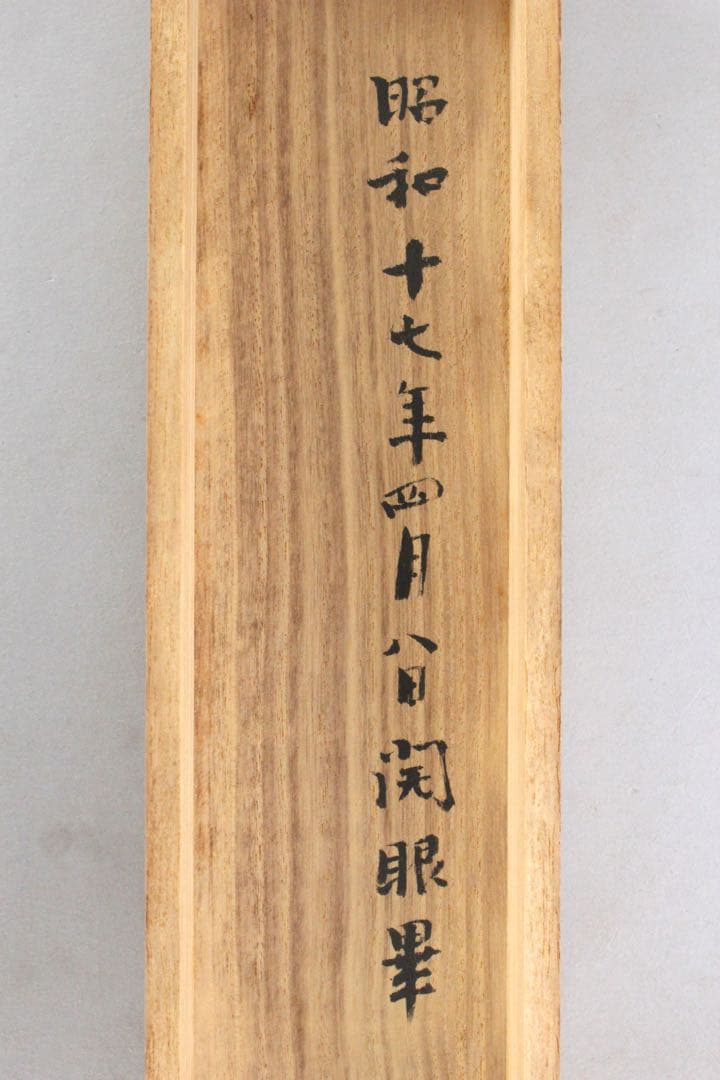 昭和十七年四月八日開眼畢